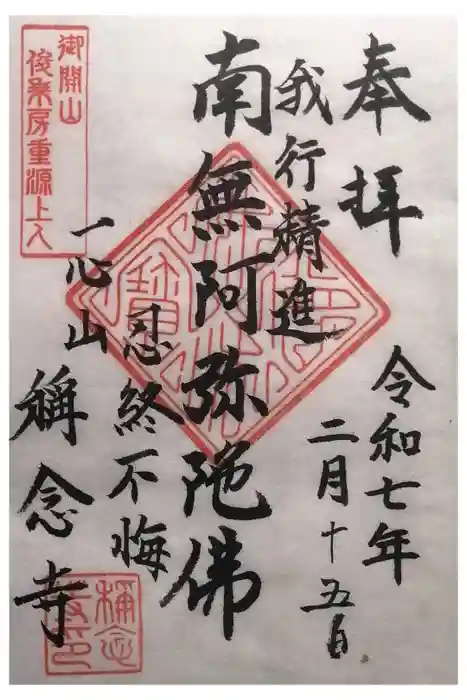 奉拝
令和七年
二月十五日
我行精進
南無阿弥陀佛
忍終不悔
一心山
稱念寺
御開山
俊乗房重源上人